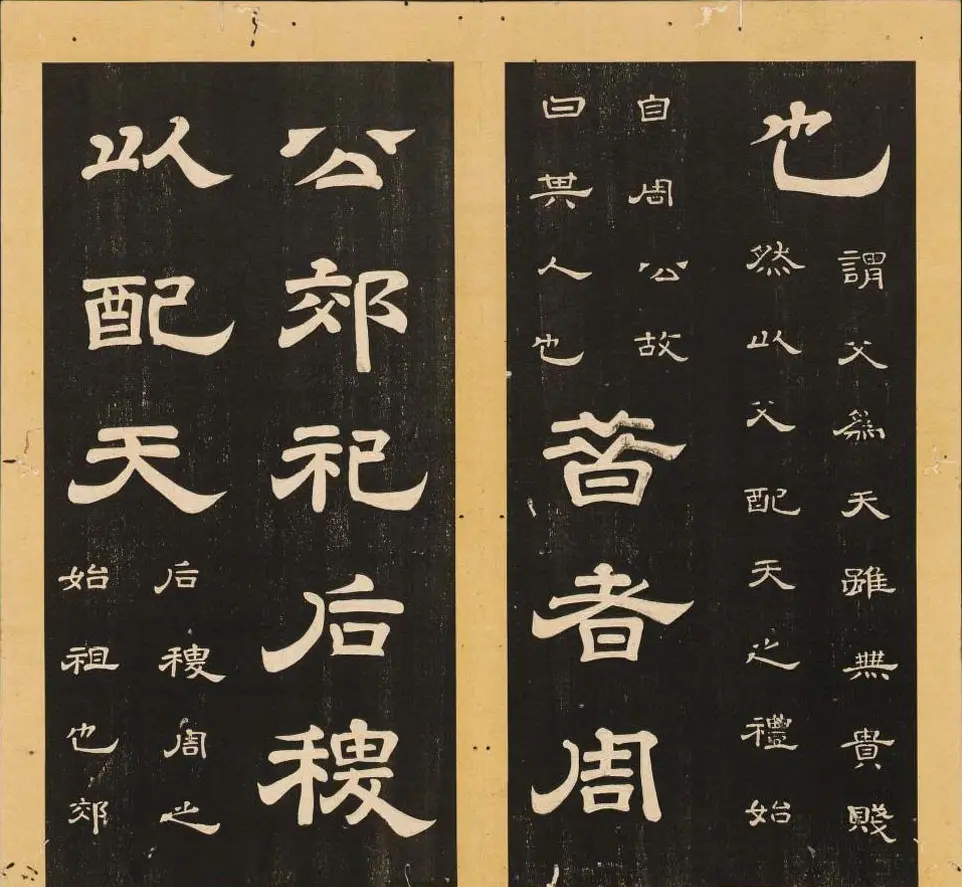 也
謂父爲天雖無貴賤
然以父配天之禮始
自周公故
曰其人也
昔者周
公郊祀后稷
以配天
后稷周之
始祖也郊